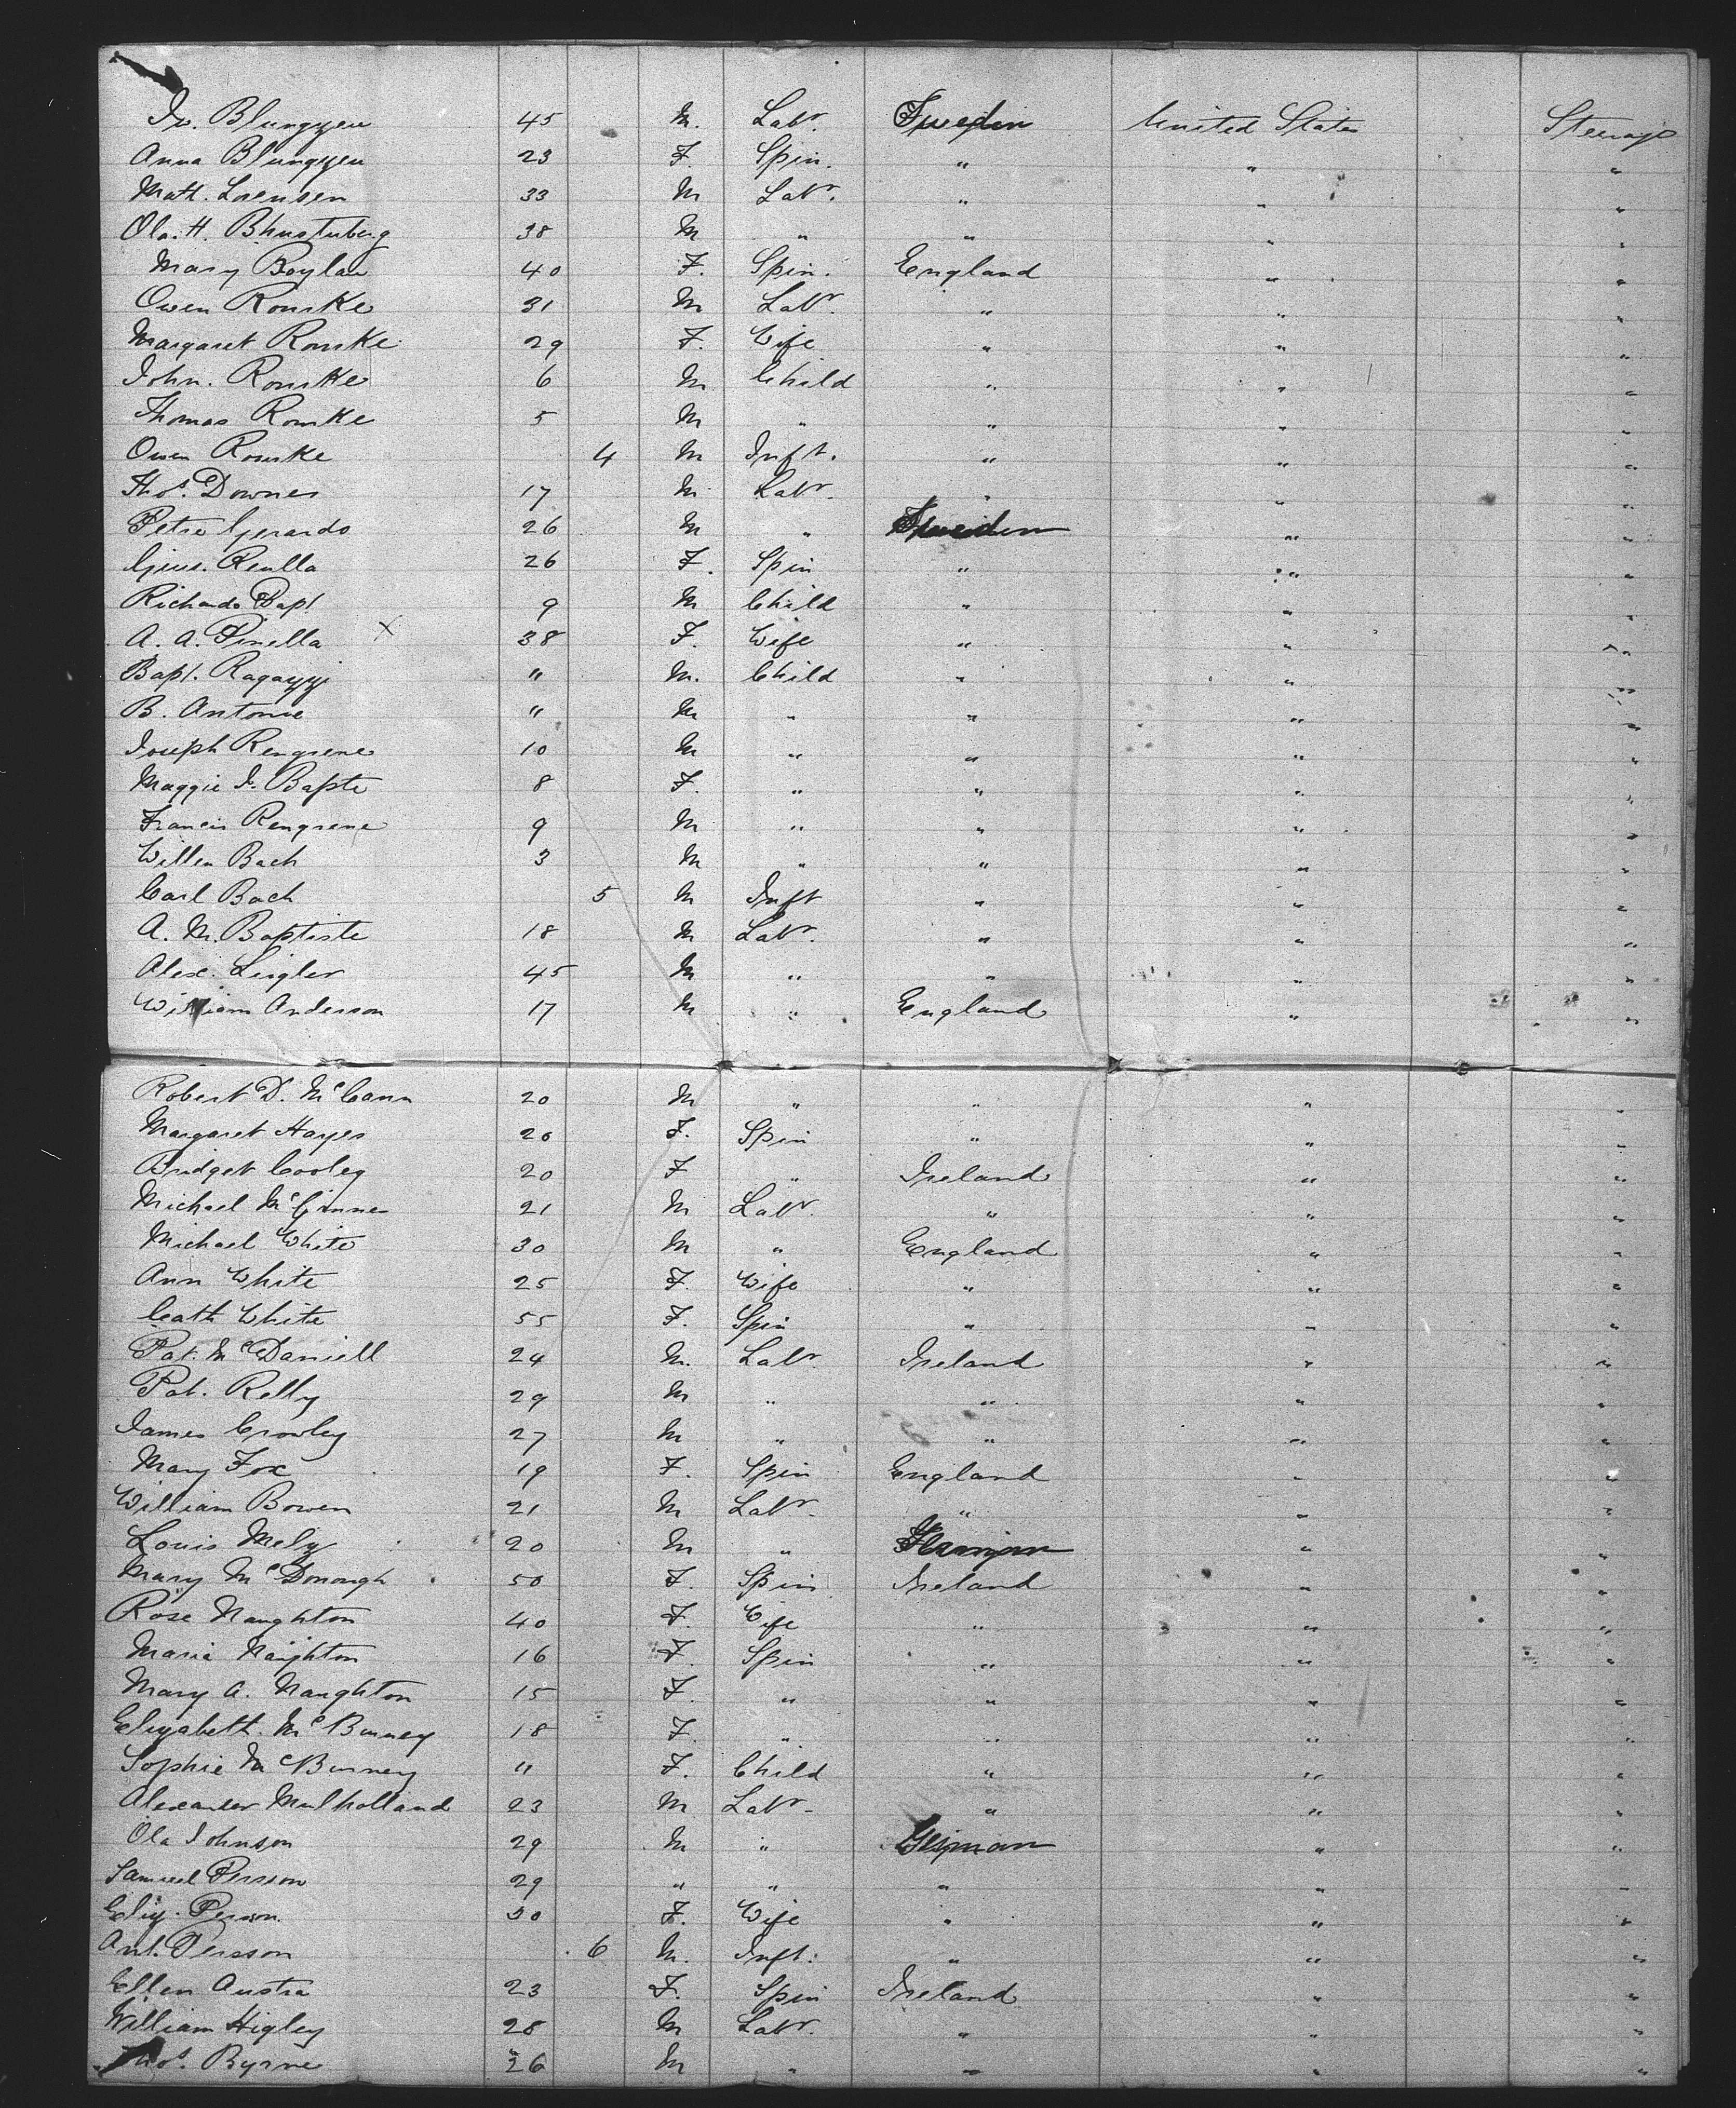 Blungyen 45 M. Labr. Sweden United States Steerage
Anna Blungyen 23 F. Spin. " " "
Matt. Lorensen 33 M Labr. " " "
Ola. H. 38 M " " " "
Mary Boylan 40 F. Spin. England " "
Owen Rourke 31 M Labr. " " "
Margaret Rourke 29 F. Wife " " "
John. Rourke 6 M Child " " "
Thomas Rourke 5 M " " " "
Owen Rourke 4 M Inft. " " "
Thos. Downes 17 M Labr. " " "
Petro Gerardo 26 M " Sweden " "
Gius. Reulla 26 F. Spin " " "
Richardo Bapt 9 M Child " " "
A. A. Pinella X 38 F. Wife " " "
Bapt. Ragazzi " M. Child " " "
B. Antonie " M " " " "
Joseph Rengrene 10 M " " " "
Maggie J. Bapte 8 F. " " " "
Francis Rengrene 9 M " " " "
Willen Bach 3 M " " " "
Carl Bach 5 M Inft " " "
A. M. Baptiste 18 M Labr. " " "
Alex. Ligler 45 M " " " "
William Anderson 17 M " England " "
Robert D. McCann 20 M " " " "
Margaret Hayes 20 F. Spin " " "
Bridget Cooley 20 F " Ireland " "
Michael McGinnes 21 M Labr. " " "
Michael White 30 M " England " "
Ann White 25 F. Wife " " "
Cath White 55 F. Spin " " "
Pat. McDaniell 24 M. Labr. Ireland " "
Pat. Relly 29 M " " " "
James Crowley 27 M " " " "
Mary Fox 19 F. Spin England " "
William Bowen 21 M Labr. " " "
Louis Mely 20 M " " "
Mary McDonough 50 F. Spin Ireland " "
Rose Naughton 40 F. Wife " " "
Maria Naughton 16 F. Spin " " "
Mary A. Naughton 15 F. " " " "
Elizabeth. McBurney 18 F. " " " "
Sophie McBurney " F. Child " " "
Alexander Mulholland 23 M Labr. " " "
Ola Johnson 29 M " German " "
Samuel Persson 29 " " " " "
Eliz. Person. 30 F. Wife " " "
Ant. Persson 6 M. Inft. " " "
Ellen Austra 23 F. Spin Ireland " "
William Higley 28 M Labr. " " "
Thos. Byrne 26 M " " " "